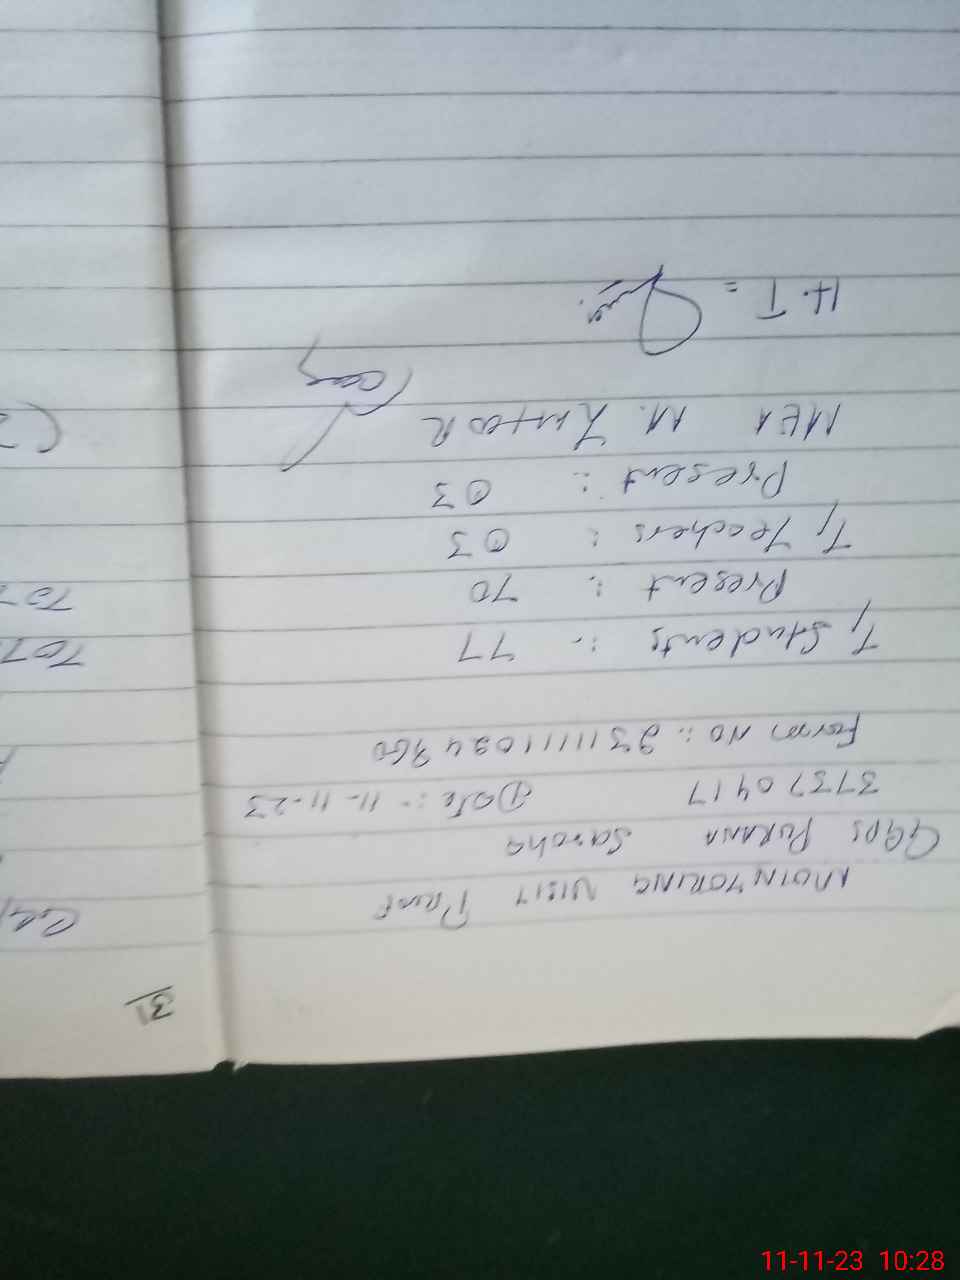 MOINTORING VISIT PROOF
GGPS PURANA Saroha
37370417 Date:- 11-11-23
Form No:- 231111094360
T, Students :- 77
Present :- 70
T, Teachers : 03
Present :- 03
MEA M.
H.T =
31
11-11-23 10:28